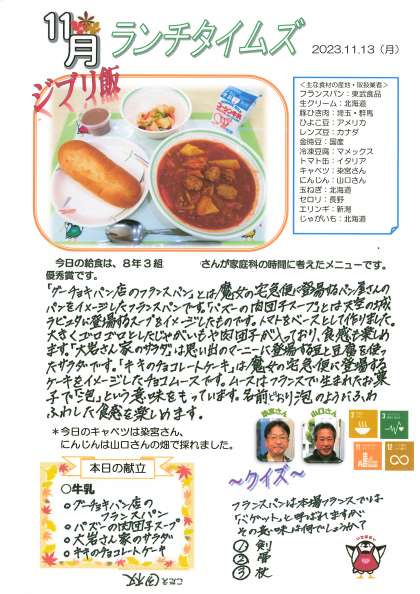 11月 ランチタイムズ
2023.11.13（月）
ジブリ飯
＜主な食材の産地・取扱業者＞
フランスパン：東武食品
生クリーム：北海道
豚ひき肉：埼玉・群馬
ひよこ豆：アメリカ
レンズ豆：カナダ
金時豆：国産
冷凍豆腐：マメックス
トマト缶：イタリア
キャベツ：染宮さん
にんじん：山口さん
玉ねぎ：北海道
セロリ：長野
エリンギ：新潟
じゃがいも：北海道
今日の給食は、８年３組 さんが家庭科の時間に考えたメニューです。
優秀賞です。
「グーチョキパン店のフランスパン」とは魔女の宅急便に登場するパン屋さんの
パンをイメージしたフランスパンです。「パズーの肉団子スープ」とは天空の城
ラピュタに登場するスープをイメージしたものです。トマトをベースとして作りました。
大きくゴロゴロとしたじゃがいもや肉団子が入っており、食感も楽しめ
ます。「大岩さん家のサラダ」は思い出のマーニーに登場する豆と豆腐を使っ
たサラダです。「キキのチョコレートケーキ」は魔女の宅急便に登場する
ケーキをイメージしたチョコムースです。ムースはフランスで生まれたお菓
子で「泡」という意味をもっています。名前どおり泡のようにふわ
ふわした食感を楽しめます。
＊今日のキャベツは染宮さん、
にんじんは山口さんの畑で採れました。
染宮さん 山口さん
本日の献立
○牛乳
○グーチョキパン店の
フランスパン
○パズーの肉団子スープ
○大岩さん家のサラダ
○キキのチョコレートケーキ
～クイズ～
フランスパンは本場フランスでは
「バゲット」と呼ばれますが、
その長い味は何でしょうか？
① 剣
② 雷
③ 杖
こたえ ③杖